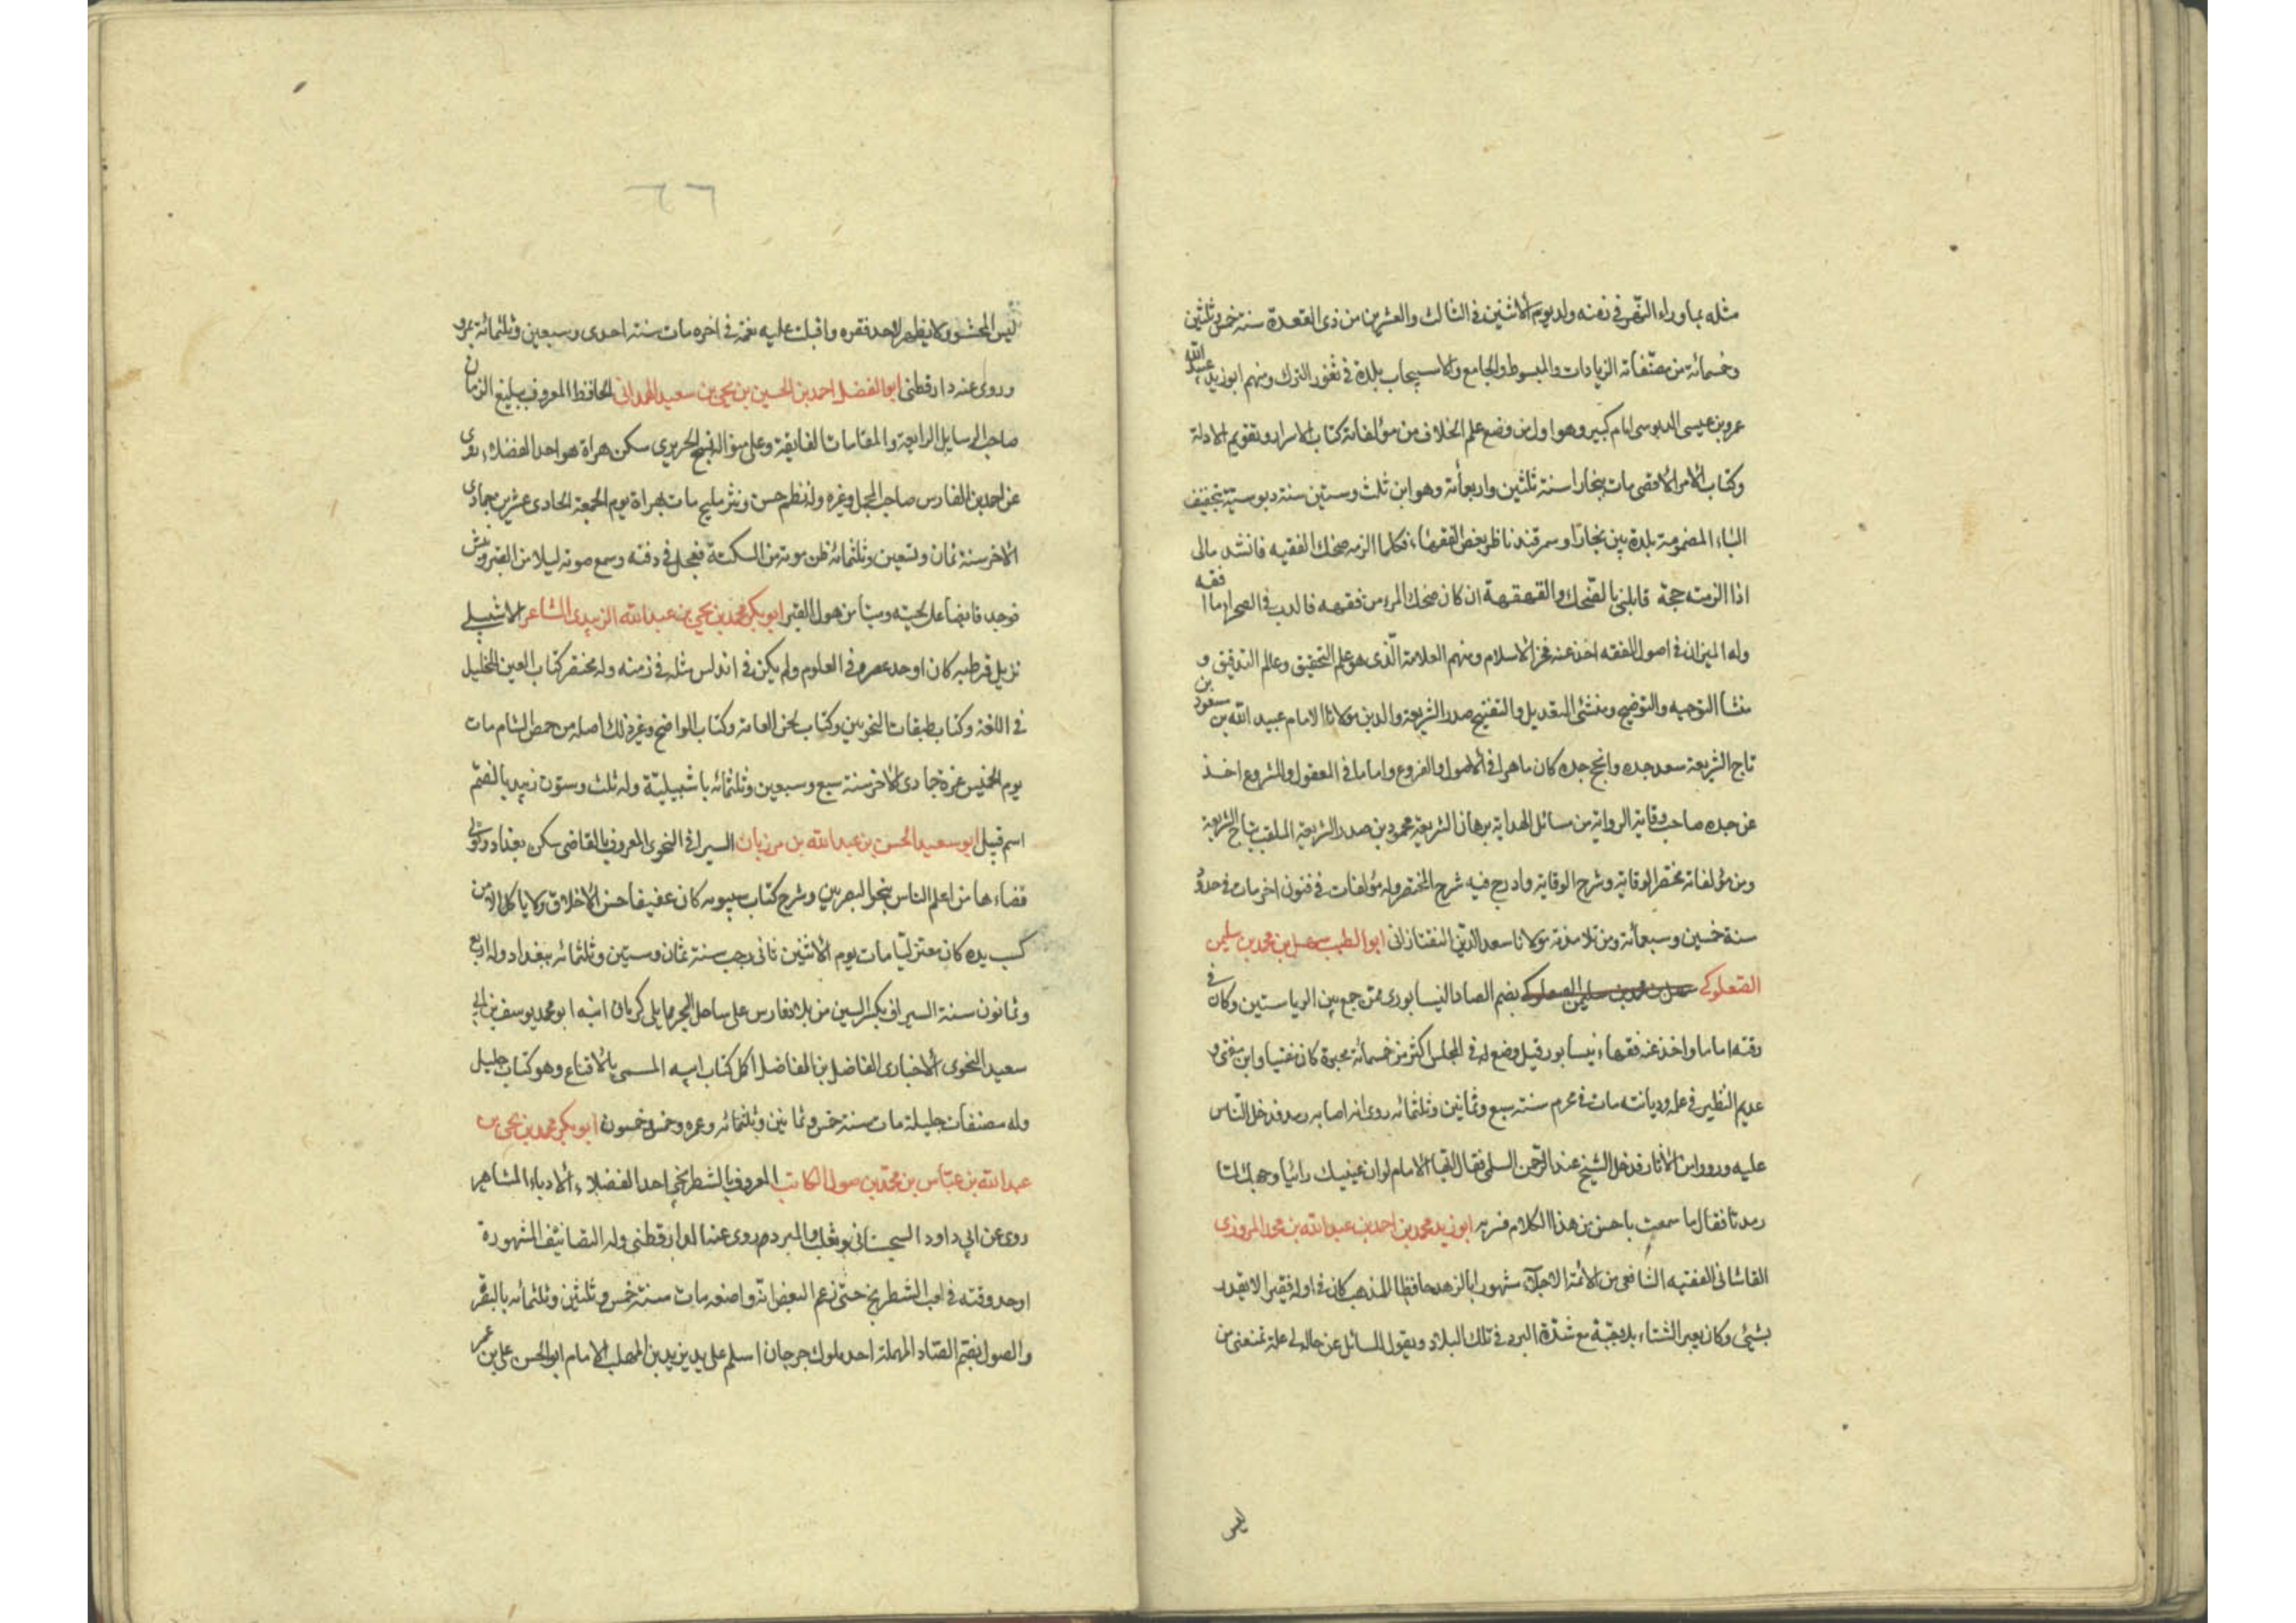 مثله بماوراء النهر فى زمنه ولد يوم الاثنين فى الثالث والعشرين من ذى القعدة سنة خمس وثلثين
وخمسمائة من مصنفاته الزيادات والمبسوط والجامع والاسبيجاب بلدة فى ثغور الترك ومنهم ابو زيد عبيد الله
عمرو بن عيسى الدبوسى امام كبير وهو اول من وضع علم الخلاف من مؤلفاته كتاب الاسرار وتقويم الادلة
وكتاب الامر الاقصى مات ببخارا سنة ثلثين واربعمأئة وهو ابن ثلث وستين سنة دبوسية بتخفيف
الباء المضمومة بلدة بين بخارا وسمرقند ناظر بعض الفقهاء فكلما الزمه ضحك الفقيه فانشد مالى
اذا الزمته حجة قابلنى بالضحك والقهقهة ان كان ضحك المرء من فقهه فالدب فى الصحراء ما افقه
وله الميزان فى اصول الفقه اخذ عنه فخر الاسلام ومنهم العلامة الذى هو علم التحقيق وعالم التدقيق و
منشأ التوجيه والتوضيح ومنشئ التعديل والتنقيح صدر الشريعة والدين مولانا الامام عبيد الله بن مسعود بن
تاج الشريعة سعد جده وانجح جده كان ماهرا فى الاصول والفروع واماما فى المعقول والمشروع اخذ
عن جده صاحب وقاية الرواية من مسائل الهداية برهان الشريعة محمود بن صدر الشريعة الملقب بتاج الشريعة
ومن مؤلفاته مختصر الوقاية وشرح الوقاية وادرج فيه شرح المختصر وله مؤلفات فى فنون اخر مات فى حدود
سنة خمسين وسبعمأئة ومن تلامذته مولانا سعد الدين التفتازانى ابو الطيب سهل بن محمد بن سليمن
الصعلوكى سهل بن محمد بن سليمن الصعلوكى بضم الصاد النيسابورى ممن جمع بين الرياستين وكان فى
وقته اماما واخذ عنه فقهاء نيسابور قيل وضع له فى المجلس اكثر من خمسمائة محبرة كان مفتيا وابن مفتى و
عديم النظير فى علمه وديانته مات فى محرم سنة سبع وثمانين وثلثمائه روى انه اصابه رمد فدخل الناس
عليه ورووا من الآثار فدخل الشيخ عند الرحمن السلمى فقال ايها الامام لو ان عينيك رأيا وجهك لما
رمدتا فقال ما سمعت باحسن من هذا الكلام فسر به ابو زيد محمد بن احمد بن عبد الله بن محمد المروزى
القاشانى الفقيه الشافعى من الائمة الاجلة مشهورا بالزهد حافظا للمذهب كان فى اوله فقيرا لا يقدر
بشئ وكان يعبر الشتاء بلا جبة مع شدة البرد فى تلك البلاد ويقول للسائل عن حاله لى علة تمنعنى من
لبس
٦٦
لبس المحشو ولا يظهر لاحد فقره واقبلت عليه نعمة فى اخره مات سنة احدى وسبعين وثلثمائة بمرو
وروى عنه دارقطنى ابو الفضل احمد بن الحسين بن يحيى بن سعيد الهمدانى الحافظ المعروف ببليغ الزمان
صاحب الرسايل الرايعة والمقامات الفايقة وعلى منواله نسج الحريرى سكن هراة هو احد الفضلاء يروى
عن احمد بن الفارس صاحب المجمل وغيره وله نظم حسن ونثر مليح مات بهراة يوم الجمعة الحادى عشر من جمادى
الاخر سنة ثمان وتسعين وثلثمائه ظن موته من السكتة فعجل فى دفنه وسمع صوته ليلا من القبر ونبش
فوجد قابضا على لحيته وميتا من هول القبر ابو بكر محمد بن يحيى بن عبد الله الزبيدى الشاعر الاشبيلى
نزيل قرطبه كان اوحد عصره فى العلوم ولم يكن فى اندلس مثله فى زمنه وله مختصر كتاب العين للخليل
فى اللغة وكتاب طبقات النحويين وكتاب لحن العامة وكتاب الواضح وغير ذلك اصله من حمص الشام مات
يوم الخميس غرة جمادى الاخر سنة سبع وسبعين وثلثمائه باشبيلية وله ثلث وستون زبيد بالضم
اسم قبيل ابو سعيد الحسن بن عبد الله بن مرزبان السيرافى النحوى المعروف بالقاضى سكن بغداد وتولى
قضاءها من اعلم الناس بنحو البصريين وشرح كتاب سيبويه كان عفيفا حسن الاخلاق ولا ياكل الا من
كسب يده كان معتزليا مات يوم الاثنين ثانى رجب سنة ثمان وستين وثلثمائه ببغداد وله اربع
وثمانون سنة السيراف بكسر السين من بلاد فارس على ساحل البحر مما يلى كرمان ابنه ابو محمد يوسف بن ابى
سعيد النحوى الاخبارى الفاضل بن الفاضل اكمل كتاب ابيه المسمى بالاقناع وهو كتاب جليل
وله مصنفات جليلة مات سنة خمس وثمانين وثلثمائه وعمره وخمس وخمسون ابو بكر محمد بن يحيى بن
عبد الله بن عباس بن محمد بن صول الكاتب المعروف بالشطرنجى احد الفضلاء الادباء المشاهير
روى عن ابى داود السجستانى وثعلب والمبرد وروى عنه الدارقطنى وله التصانيف المشهورة
اوحد وقته فى لعب الشطرنج حتى زعم البعض انه واضعه مات سنة خمس وثلثين وثلثمائه بالبقر
والصول بضم الصاد المهملة احد ملوك جرجان اسلم على يد يزيد بن المهلب الامام ابو الحسن على بن عمر